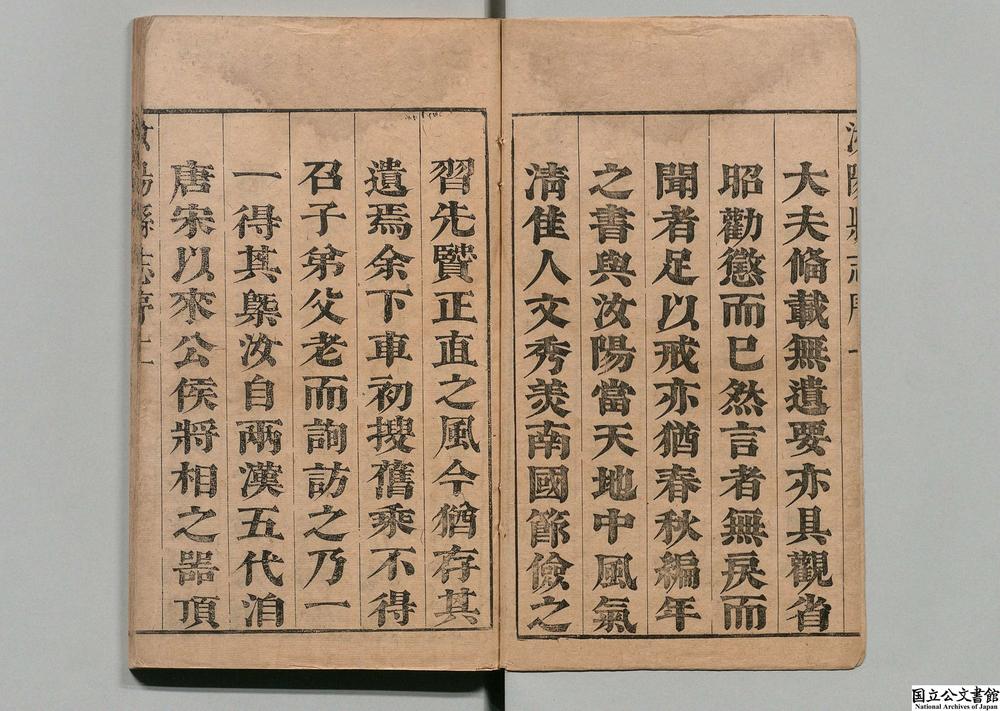 大夫俻載無遺要亦具觀省
昭勸懲而已然言者無戾而
聞者足以戒亦猶春秋編年
之書與汝陽當天地中風氣
淸隹人文秀羙南國節儉之
習先賢正直之風今猶存其
遺焉余下車初搜舊乘不得
召子弟父老而詢訪之乃一
一得其槩汝自兩漢五代洎
唐宋以來公侯將相之器項
汝陽縣志序 二
国立公文書館
National Archives of Japan